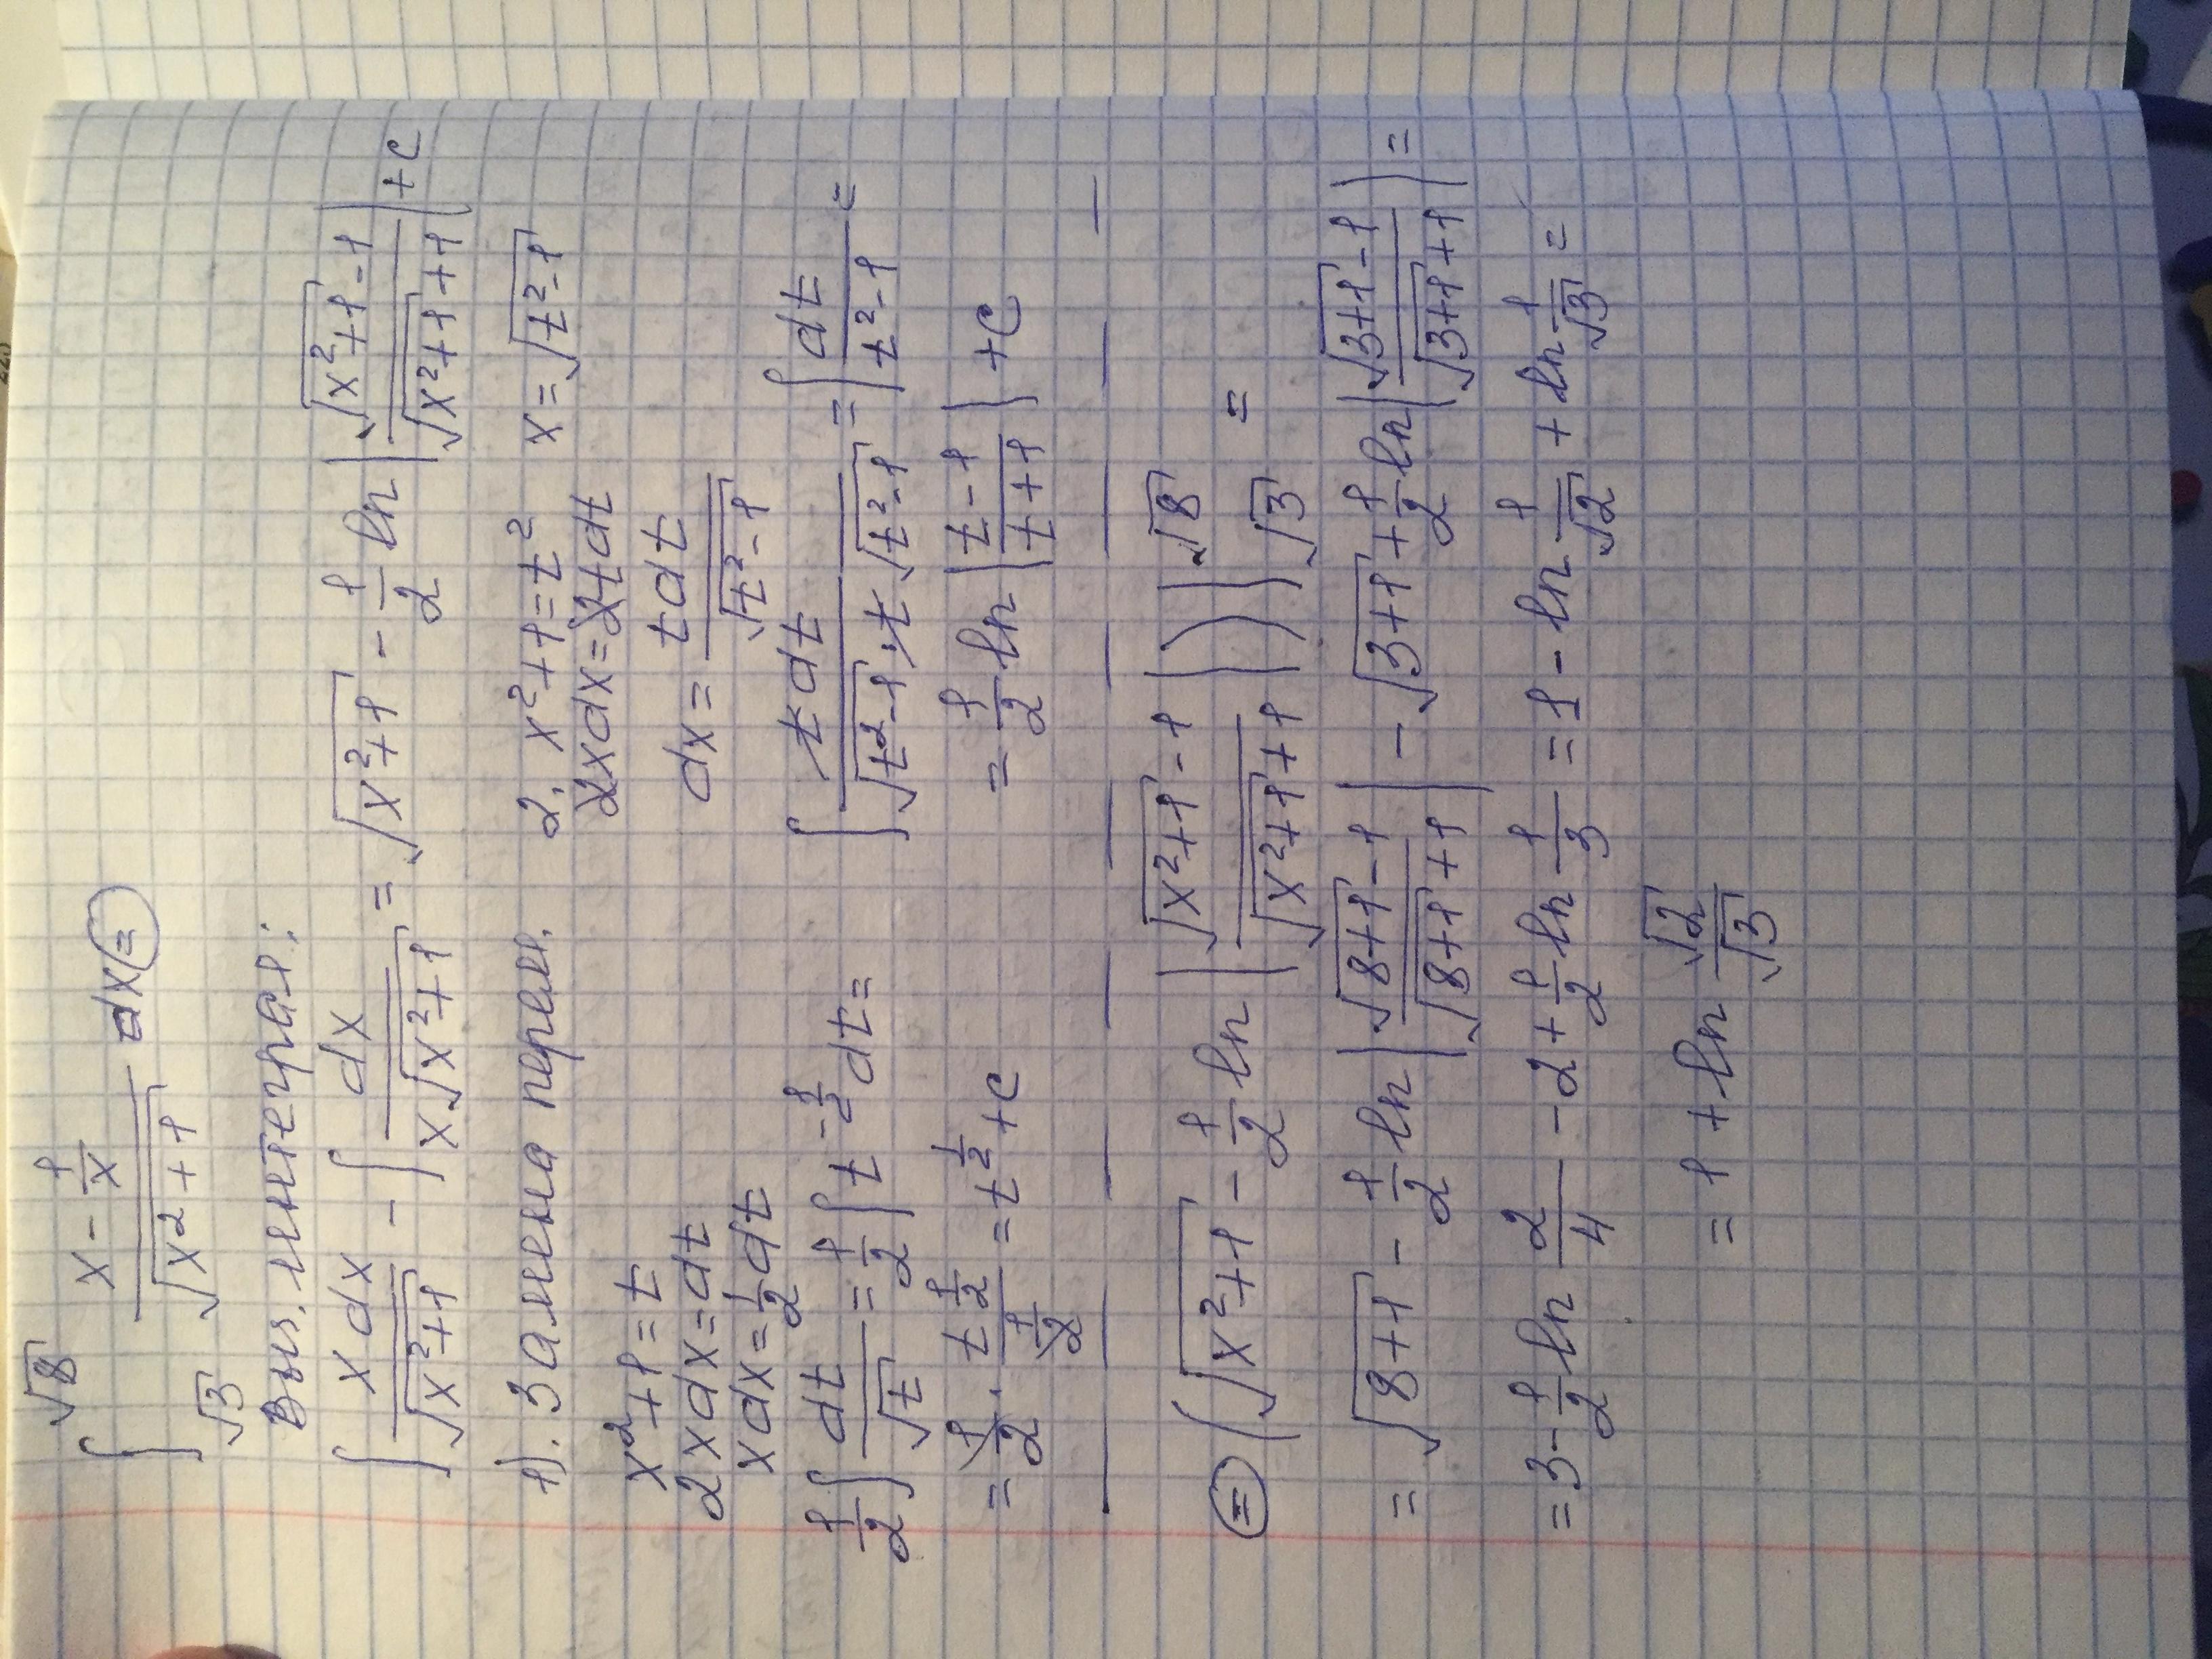 ∫_{√3}^{√8} (x - 1/x)/√(x²+1) dx ⊜
Выч. интеграл:
∫ xdx/√(x²+1) - ∫ dx/(x√(x²+1)) = √(x²+1) - 1/2 ln |(√(x²+1) - 1)/(√(x²+1) + 1)| + c
1). Замена перем.
x²+1 = t
2xdx = dt
xdx = 1/2 dt
1/2 ∫ dt/√t = 1/2 ∫ t^{-1/2} dt =
= 1/2 · t^{1/2}/(1/2) = t^{1/2} + c
2. x²+1 = t² x = √(t²-1)
2xdx = 2tdt
dx = tdt/√(t²-1)
∫ tdt/(√(t²-1) · t √(t²-1)) = ∫ dt/(t²-1) =
= 1/2 ln |(t-1)/(t+1)| + c
⊜ (√(x²+1) - 1/2 ln |(√(x²+1) - 1)/(√(x²+1) + 1)|) |_{√3}^{√8} =
= √(8+1) - 1/2 ln |(√(8+1) - 1)/(√(8+1) + 1)| - √(3+1) + 1/2 ln |(√(3+1) - 1)/(√(3+1) + 1)| =
= 3 - 1/2 ln 2/4 - 2 + 1/2 ln 1/3 = 1 - ln 1/√2 + ln 1/√3 =
= 1 + ln √2/√3